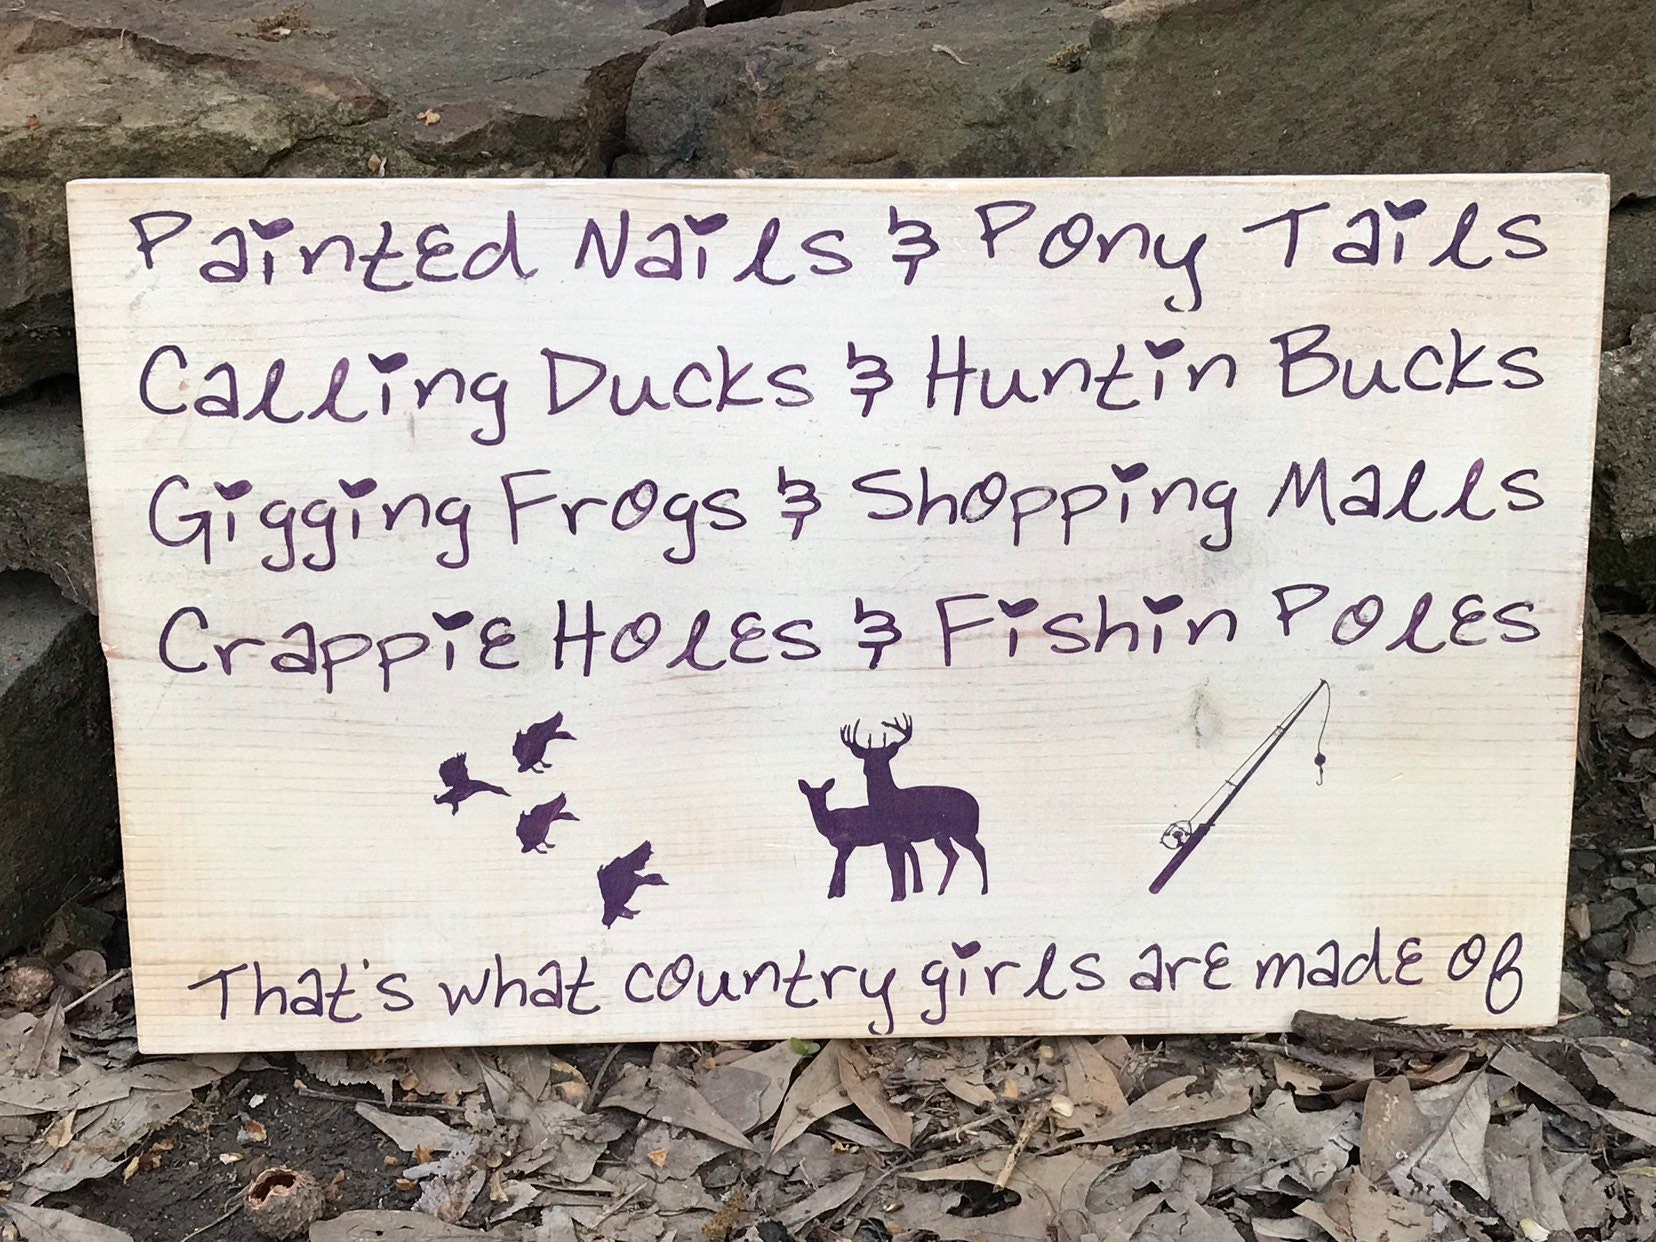 Painted Nails & Pony Tails
Calling Ducks & Huntin Bucks
Gigging Frogs & Shopping Malls
Crappie Holes & Fishin Poles
That's what country girls are made of